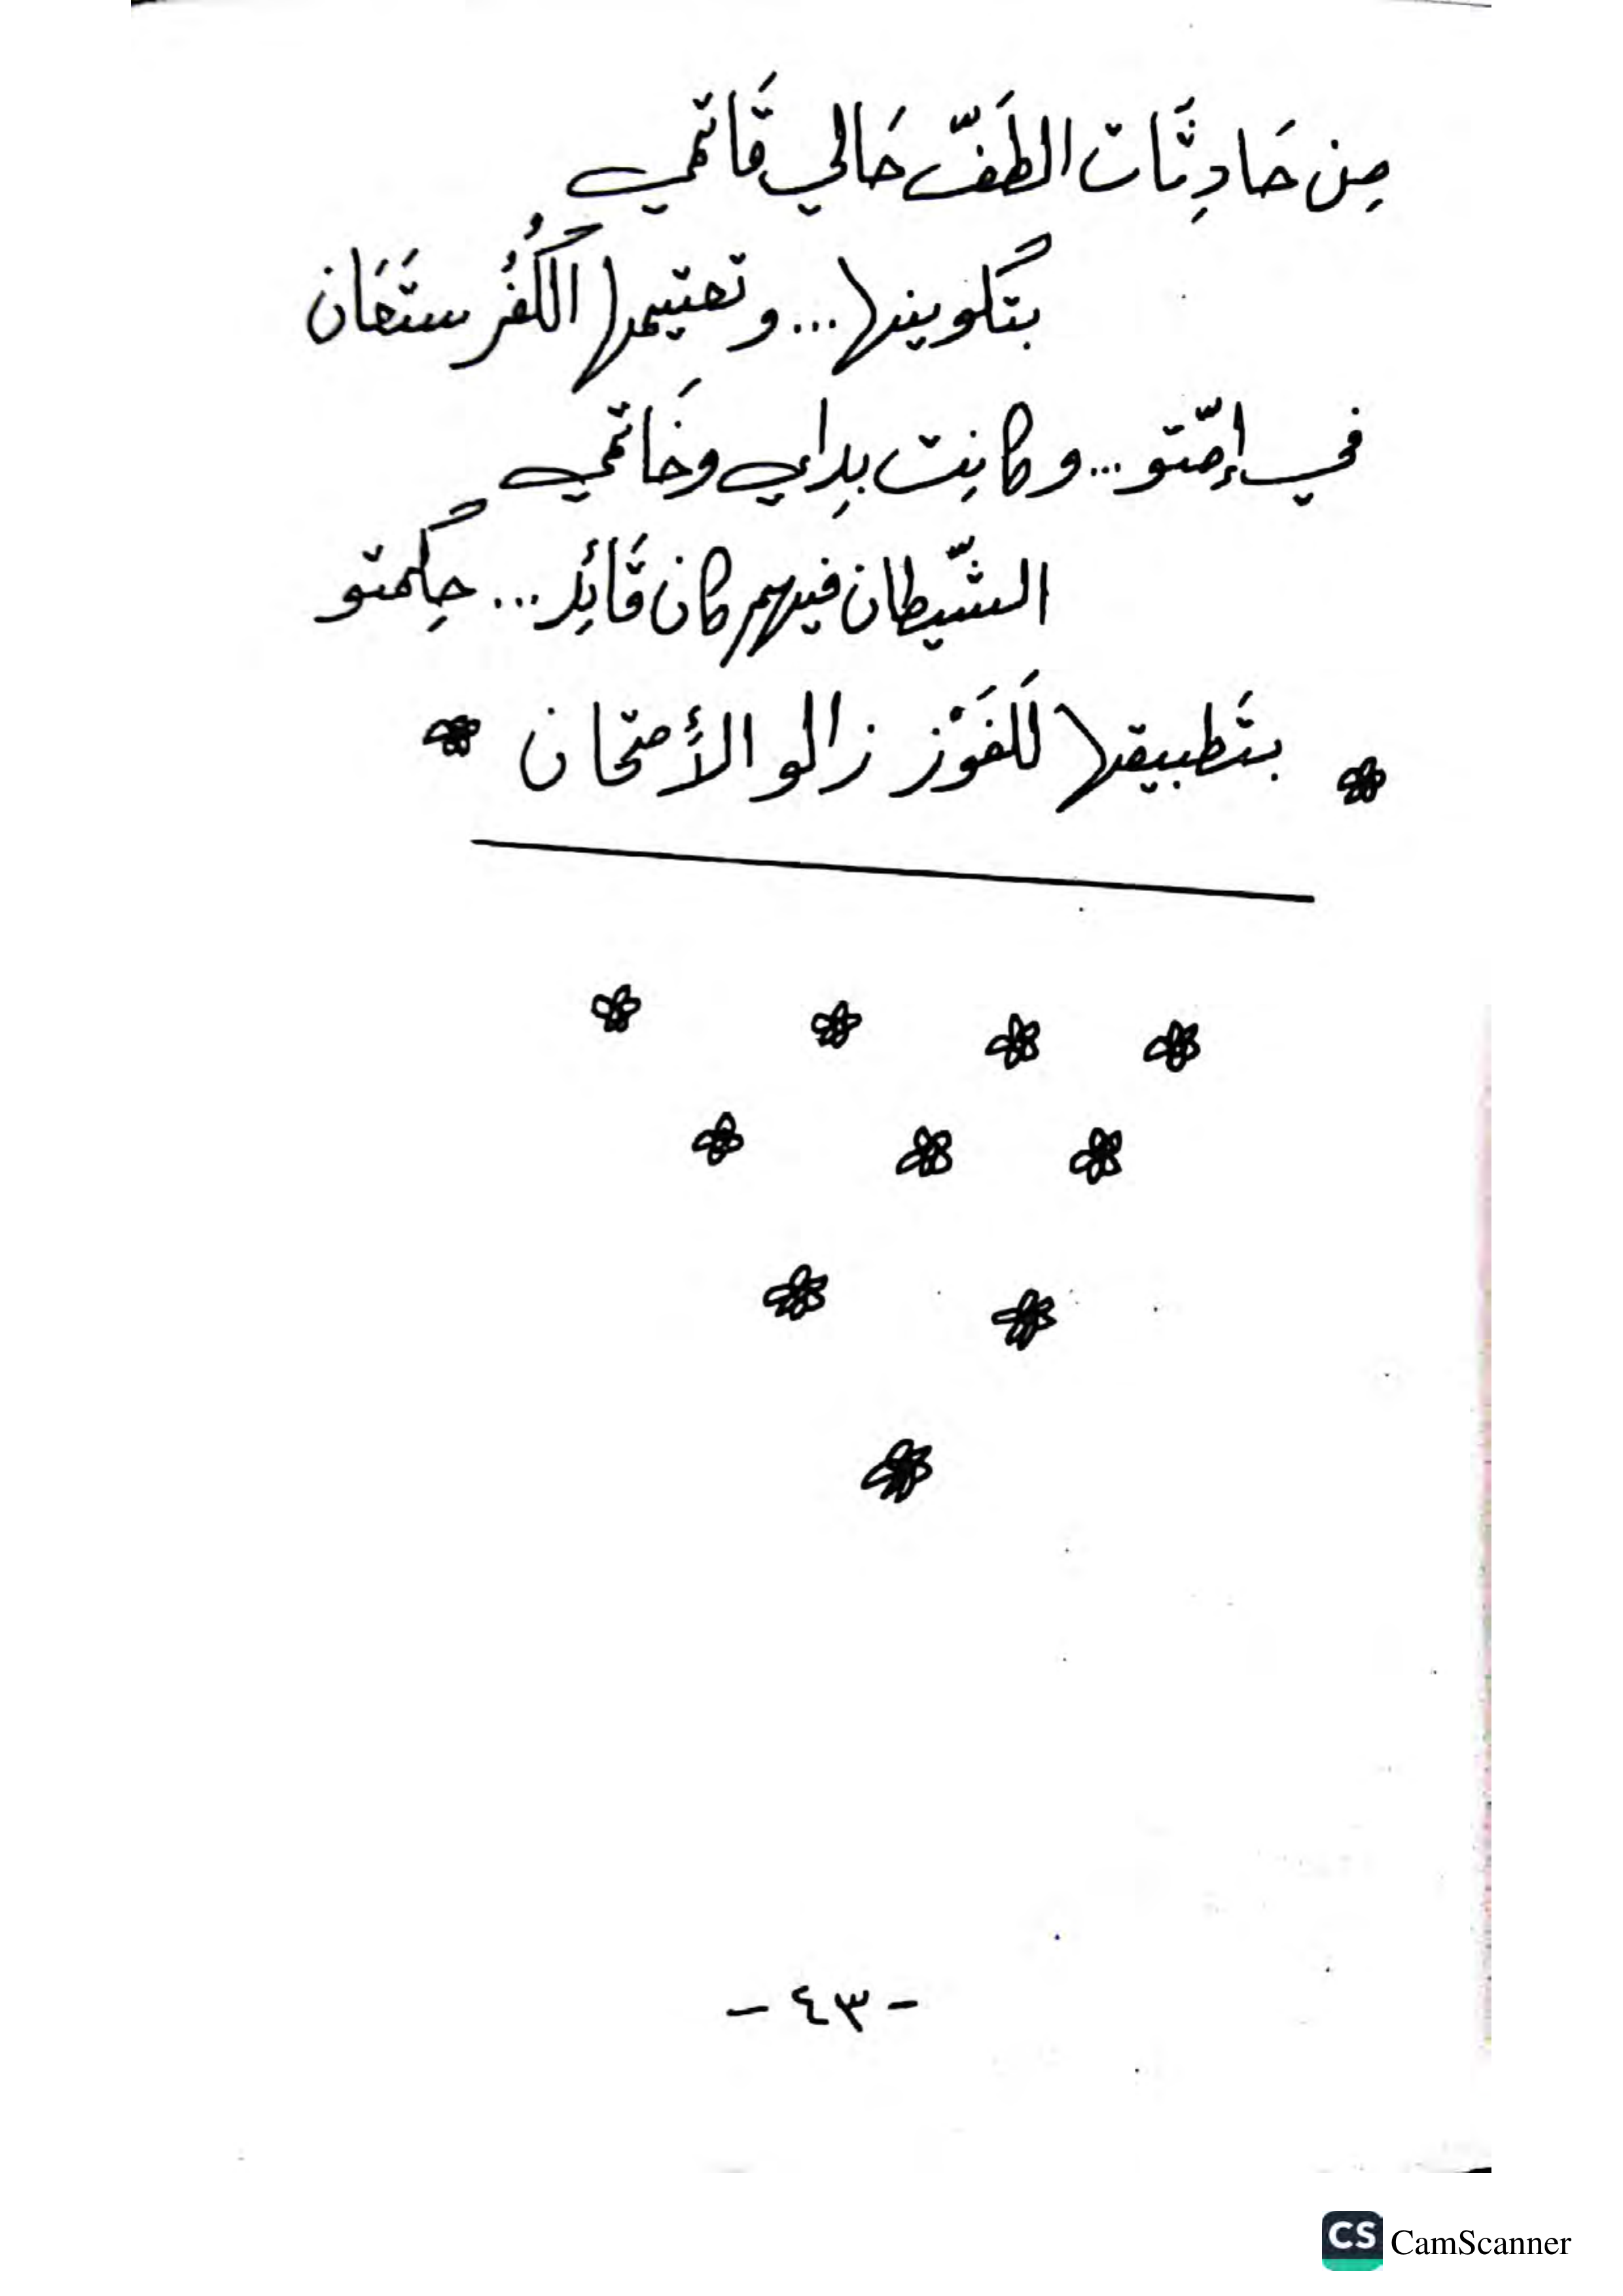 مِن حَادِثَات الطَفّ حَالي قَاتمي
بتَكوينها ... وتعتيمها الكُفُر ستَعَان
في إمّتو ... وكانِت بِداي وخَاتمي
الشّيطان فيهم كان قَائِد ... حِكمتو
بتَطبيقها لَلفَوْز زالو الأمتحان
- ٤٣ -
CS CamScanner